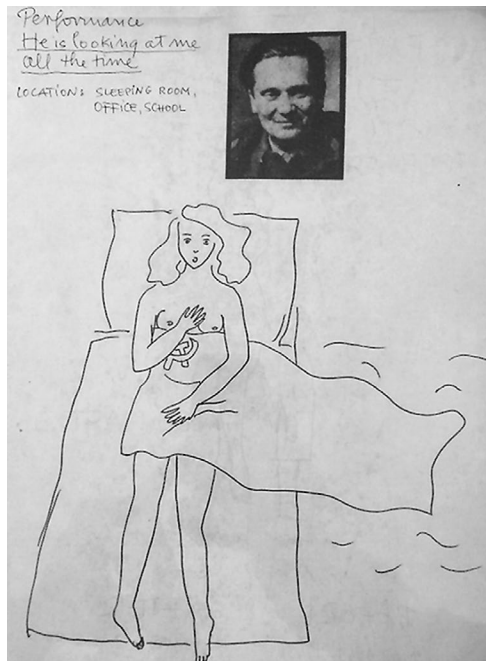 Performance
He is looking at me
all the time
LOCATION: SLEEPING ROOM,
OFFICE, SCHOOL